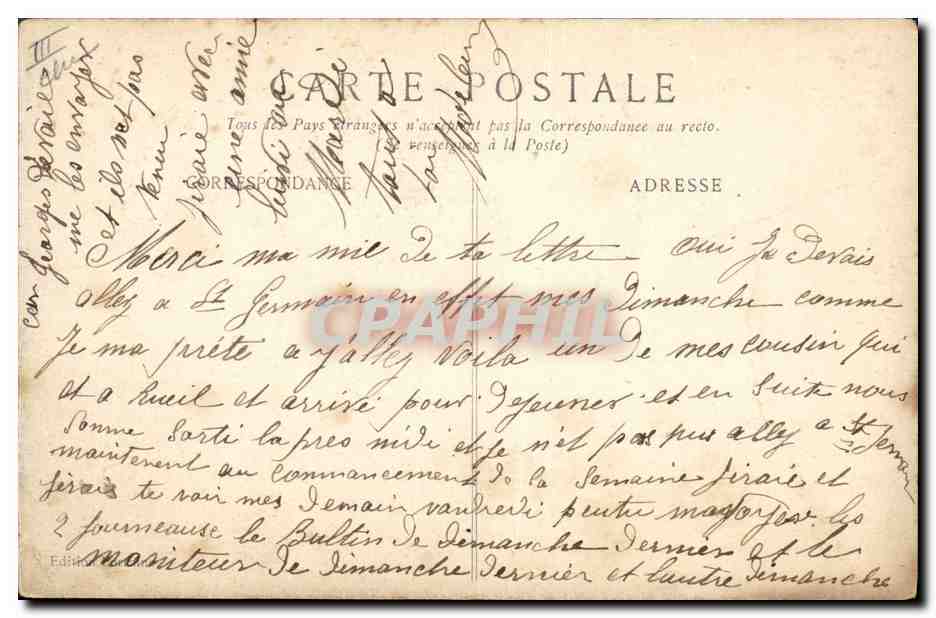 III
CARTE POSTALE
Tous les Pays étrangers n'acceptent pas la Correspondance au recto.
(Se renseigner à la Poste)
CORRESPONDANCE
ADRESSE
Merci ma mie de ta lettre oui Je Devais
alley a St Germain en effet mes Dimanche comme
Je ma prête a y alley voila un De mes cousin qui
et a Rueil et arrivé pour Dejeuner et en suite nous
somme sorti la pres midi et Je n'et pas pus alley a St Germain
maintenent au commancement De la Semaine Jiraie et
Jirais te voir mes Demain vandredi peutu les
2 Journeause le Bultin De Dimanche Dernier et le
moniteur De Dimanche Dernier et lautre Dimanche
car Georges Devait
me les envoyer
et ils net pas
venu
Jiraie avec
une amie
lundi ou
Mardi
tout a
toi
Edition
CPAPHIL